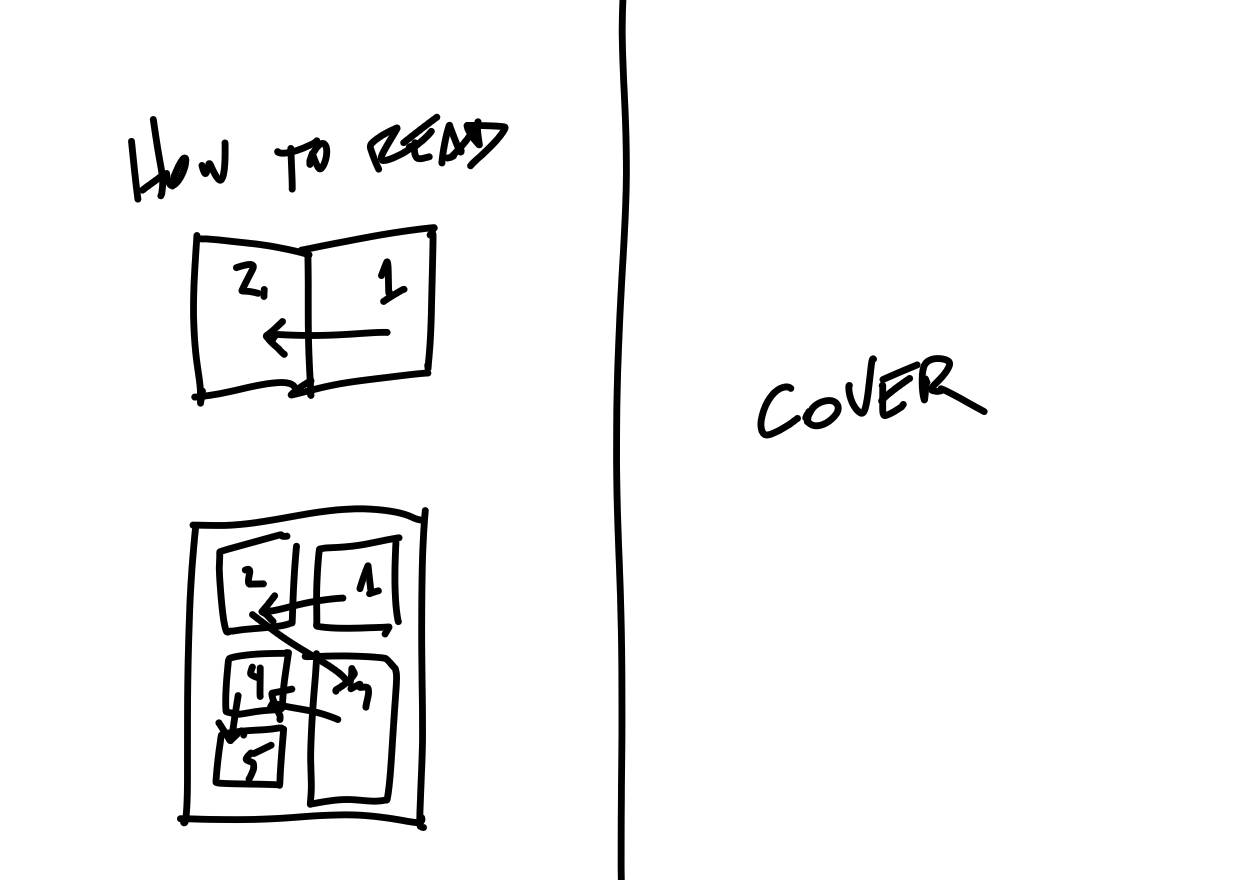 HOW TO READ
2. 1
2 1
4 3
5
COVER